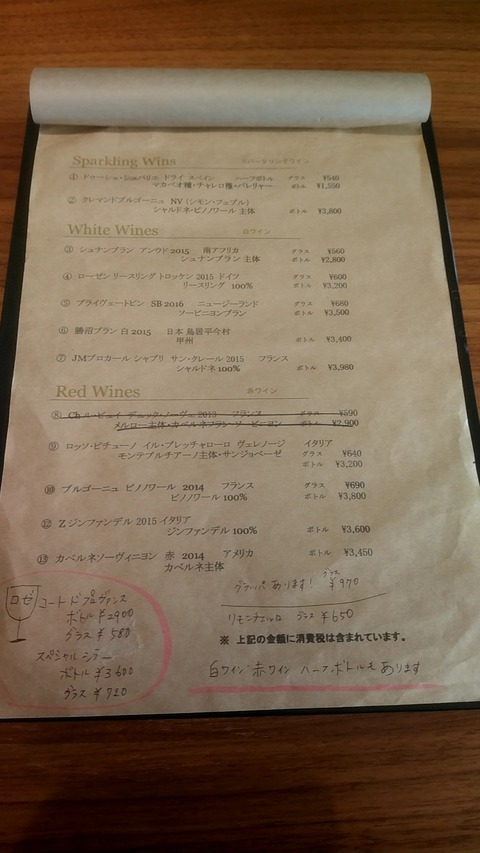 Sparkling Wins スパークリングワイン
① ドゥーシュ・シュバリエ ドライ スペイン ハーフボトル グラス ¥540
マカベオ種・チャレロ種・パレリャー ボトル ¥1,550
② クレマンドブルゴーニュ NV (シモン・フェブル)
シャルドネ・ピノノワール 主体 ボトル ¥3,800
White Wines 白ワイン
③ シュナンブラン アンウド 2015 南アフリカ グラス ¥560
シュナンブラン 主体 ボトル ¥2,800
④ ローゼン リースリング トロッケン 2015 ドイツ グラス ¥600
リースリング 100% ボトル ¥3,200
⑤ プライヴェートビン SB 2016 ニュージーランド グラス ¥680
ソービニヨンブラン ボトル ¥3,500
⑥ 勝沼ブラン 白 2015 日本 鳥居平今村 ボトル ¥3,400
甲州
⑦ JMブロカール シャブリ サン・クレール 2015 フランス
シャルドネ 100% ボトル ¥3,980
Red Wines 赤ワイン
⑧ Ch ル・ピュイ デュック・ノーヴェ 2013 フランス グラス ¥590
メルロー主体・カベルネフラン・ソービニヨン ボトル ¥2,900
⑨ ロッソ・ピチューノ イル・ブレッチャローロ ヴェレノージ イタリア
モンテプルチアーノ主体・サンジョベーゼ グラス ¥640
ボトル ¥3,200
⑩ ブルゴーニュ ピノノワール 2014 フランス グラス ¥690
ピノノワール 100% ボトル ¥3,800
⑫ Z ジンファンデル 2015 イタリア
ジンファンデル 100% ボトル ¥3,600
⑬ カベルネソーヴィニヨン 赤 2014 アメリカ ボトル ¥3,450
カベルネ主体
グラッパ あります! グラス ¥970
リモンチェッロ グラス ¥650
※ 上記の金額に消費税は含まれています。
白ワイン 赤ワイン ハーフボトルも あります
ロゼ
コートドプロヴァンス
ボトル ¥2900
グラス ¥580
スペシャルシラー
ボトル ¥3600
グラス ¥720